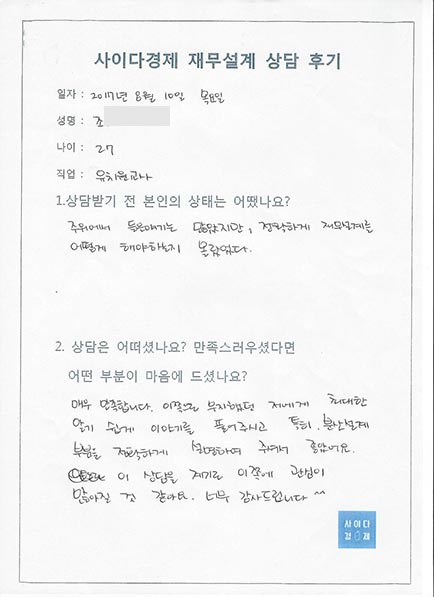 사이다경제 재무설계 상담 후기
일자 : 2017년 8월 10일 목요일
성명 : 조
나이 : 27
직업 : 유치원교사
1.상담받기 전 본인의 상태는 어땠나요?
주위에서 들은얘기는 많았지만, 정확하게 재무설계를
어떻게 해야하는지 몰랐었다.
2. 상담은 어떠셨나요? 만족스러우셨다면
어떤 부분이 마음에 드셨나요?
매우 만족합니다. 이쪽으로 무지했던 저에게 최대한
알기 쉽게 이야기를 풀어주시고 특히, 분산설계
부분을 정확하게 설명하여 주셔서 좋았어요.
이 상담을 계기로 이쪽에 관심이
많아질 것 같아요. 너무 감사드립니다 ^^
사이다
경제